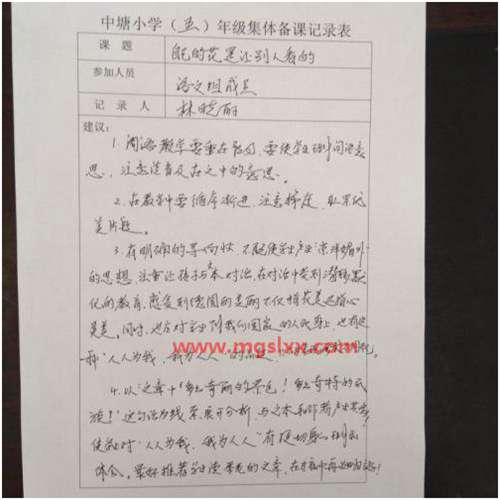 中塘小学（五）年级集体备课记录表
课 题 自己的花是让别人看的
参加人员 语文组成员
记 录 人 林晓丽
建议：
1. 词语教学要重在努力，要使学生理解词语意
思，注意读音及在文中的意思。
2. 在教学中要循序渐进，注意
美片段。
3. 有明确的导向性，不能使学生产生崇洋媚外
的思想，注重让孩子与文本对话，在对话中受到潜移默
化的教育，感受到德国的美丽不仅情花美还有心
灵美。同时，也会对学生到我们国家的人民身上，也有这
种“人人为我，我为人人”的
www.mgslxx.com
4. 以“文章中”多么奇丽的景色！多么奇特的民
族！”这句话为线索，展开分析，与文本和作者产生共鸣，
使学生对“人人为我，我为人人”有更切身的
体会。最好推荐学生读季老的文章，在